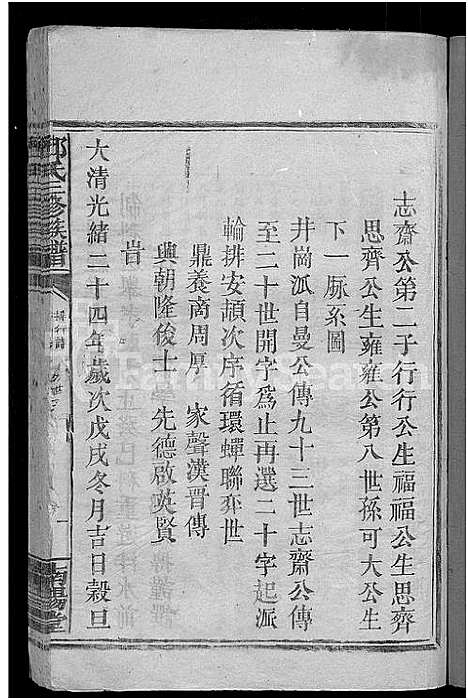 志齋公第二子行行公生福福公生思齊
思齊公生雍雍公第八世孫可大公生
下一脉系圖
井崗派自曼公傳九十三世志齋公傳
至二十世開字爲止再選二十字起派
輪排安頓次序循環蟬聯弈世
鼎養商周厚　家聲漢晉傳
興朝隆俊士　先德啟英賢
旹
大清光緒二十四年歲次戊戌冬月吉日穀旦
氏三修族譜
南陽堂
FamilySearch